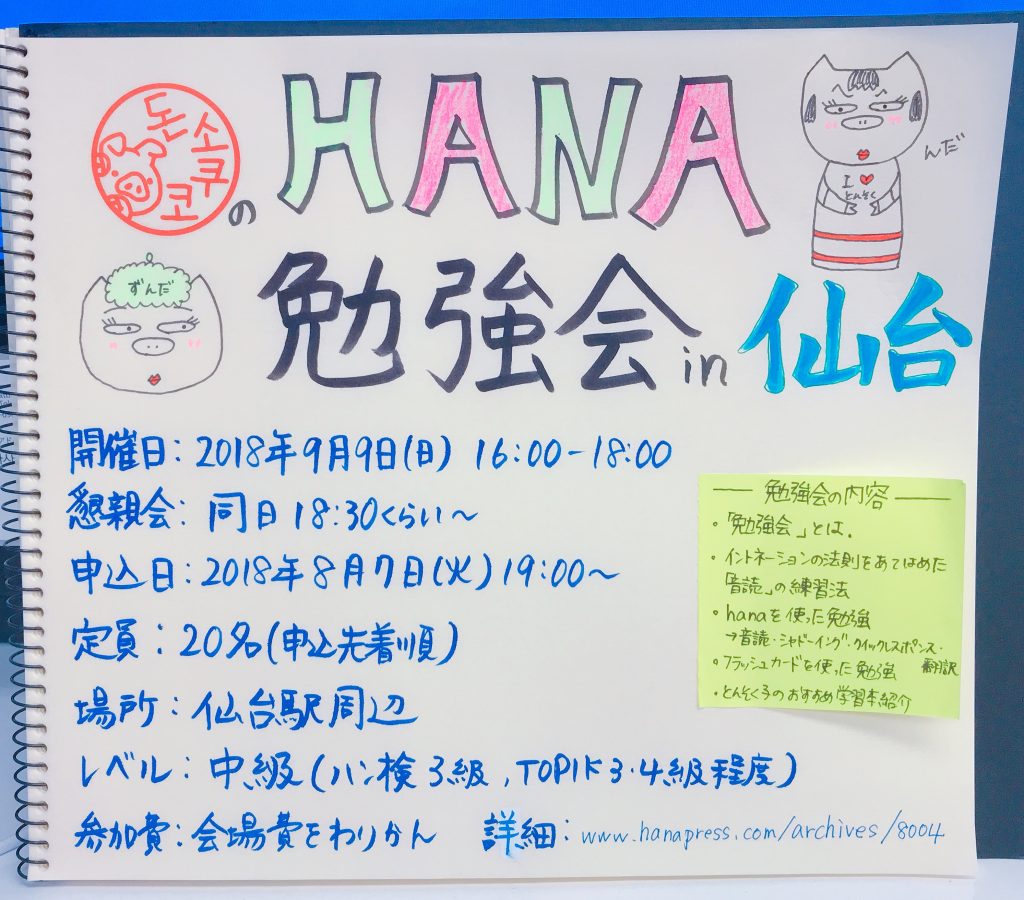 돈소
코쿠
の
HANA
んだ
I ♥
とんそく
勉強会 in 仙台
ずんだ
開催日：2018年9月9日(日) 16:00-18:00
懇親会：同日 18:30くらい～
申込日：2018年8月7日(火)19:00～
定員：20名(申込先着順)
場所：仙台駅周辺
レベル：中級(ハン検3級,TOPIK3・4級程度)
参加費：会場費をわりかん 詳細：www.hanapress.com/archives/8004
勉強会の内容
・「勉強会」とは.
・イントネーションの法則をあてはめた
「音読」の練習法
・hanaを使った勉強
→音読・シャドーイング・クイックレスポンス・
翻訳
・フラッシュカードを使った勉強
・とんそく子のおすすめ学習本紹介